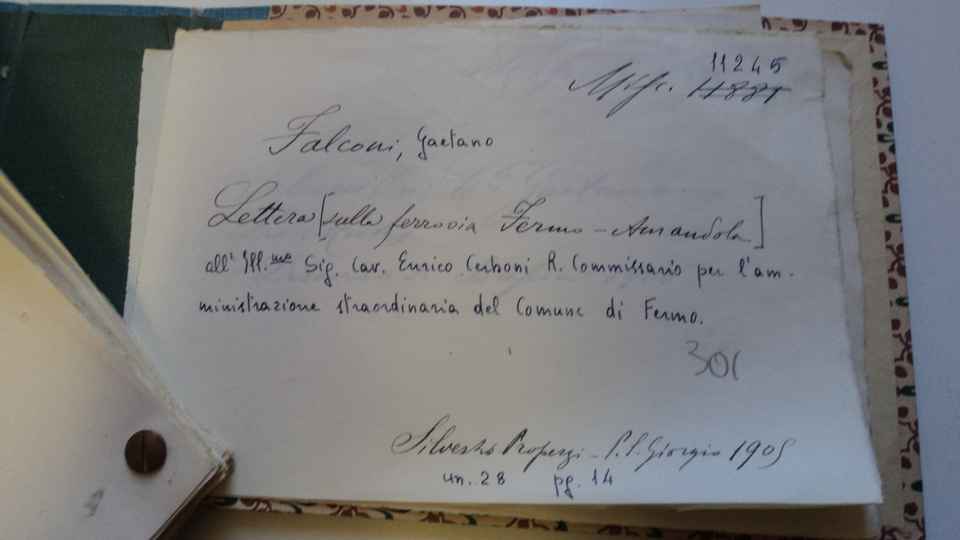 11245
Misc. 4881
Falconi, Gaetano
Lettera [sulla ferrovia Fermo - Amandola]
all' Ill.mo Sig. Cav. Enrico Cerboni R. Commissario per l'am-
ministrazione straordinaria del Comune di Fermo.
301
Silvestro Properzi - P. S. Giorgio 1905
un. 28 pg. 14